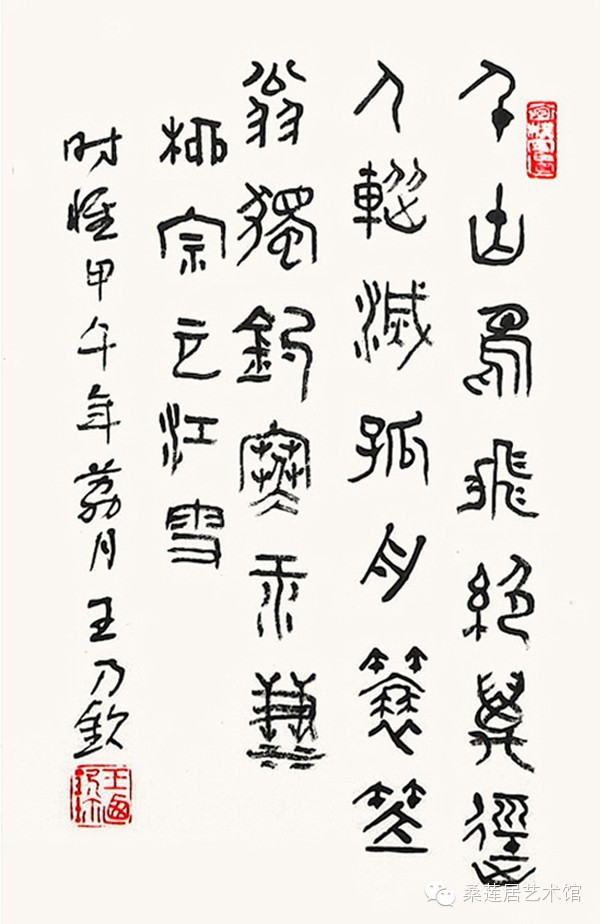 千山鳥飛絕萬徑
人蹤滅孤舟蓑笠
翁獨釣寒雪
柳宗元江雪
时惟甲午年荔月王乃钦
桑莲居艺术馆